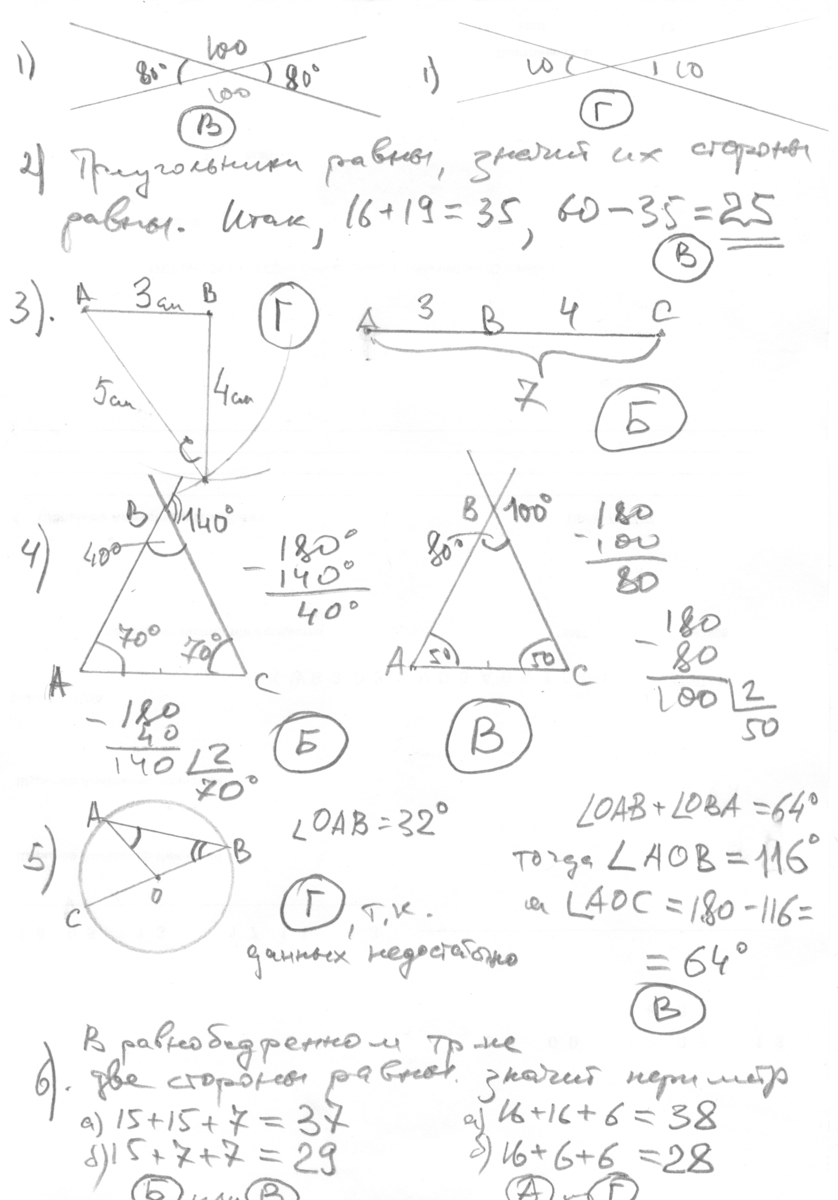 1) 100 80° 80° 100 В
1) 10 10 Г
2) Треугольники равны, значит их стороны
равны. Итак, 16+19=35, 60−35=25
В
3). A 3см B 5см 4см C Г
A 3 B 4 C 7 Б
4) B 140° 40° 70° 70° A C
180°
− 140°
40°
− 180
40
140 2
70°
Б
B 100° 80° 50 50 A C
180
− 100
80
− 180
80
100 2
50
В
5) A B O C
∠OAB=32°
Г, т.к.
данных недостаточно
∠OAB+∠OBA=64°
тогда ∠AOB=116°
а ∠AOC=180−116=
=64°
В
6). В равнобедренном тр-ке
две стороны равны. значит периметр
а) 15+15+7=37
б) 15+7+7=29
Б или В
а) 16+16+6=38
б) 16+6+6=28
А Г